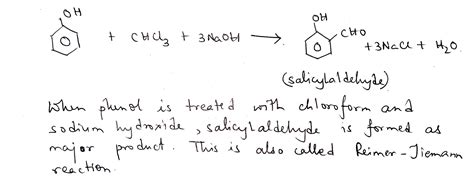 OH OH
+ CHCl3 + 3NaOH ⟶ CHO + 3NaCl + H2O
(salicylaldehyde)
When phenol is treated with chloroform and
sodium hydroxide, salicylaldehyde is formed as
major product. This is also called Reimer-Tiemann
reaction.